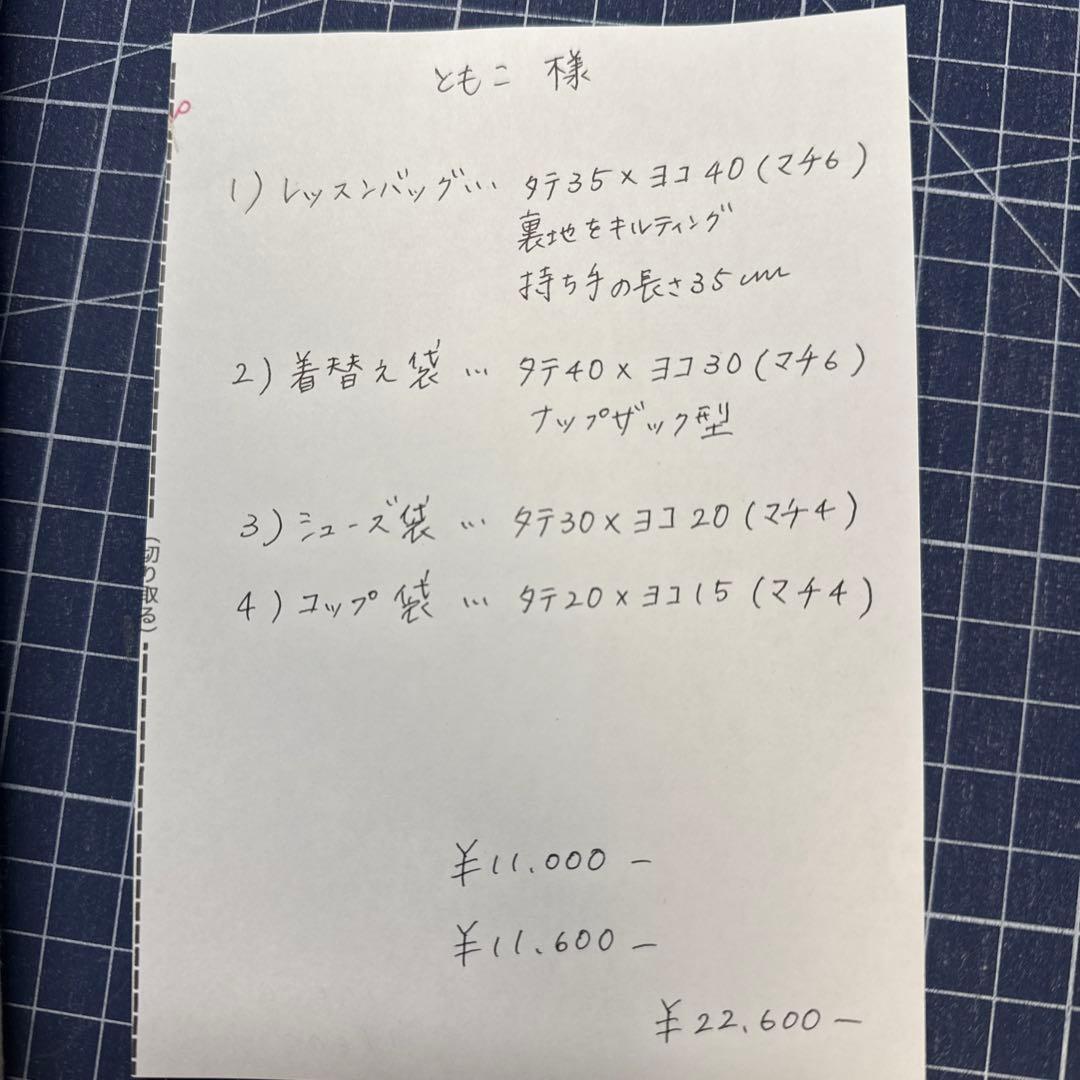 ともこ 様
1) レッスンバッグ… タテ35×ヨコ40(マチ6)
裏地をキルティング
持ち手の長さ35cm
2) 着替え袋 … タテ40×ヨコ30(マチ6)
ナップザック型
3) シューズ袋 … タテ30×ヨコ20(マチ4)
(切り取る)
4) コップ袋 … タテ20×ヨコ15(マチ4)
¥11.000-
¥11.600-
¥22.600-